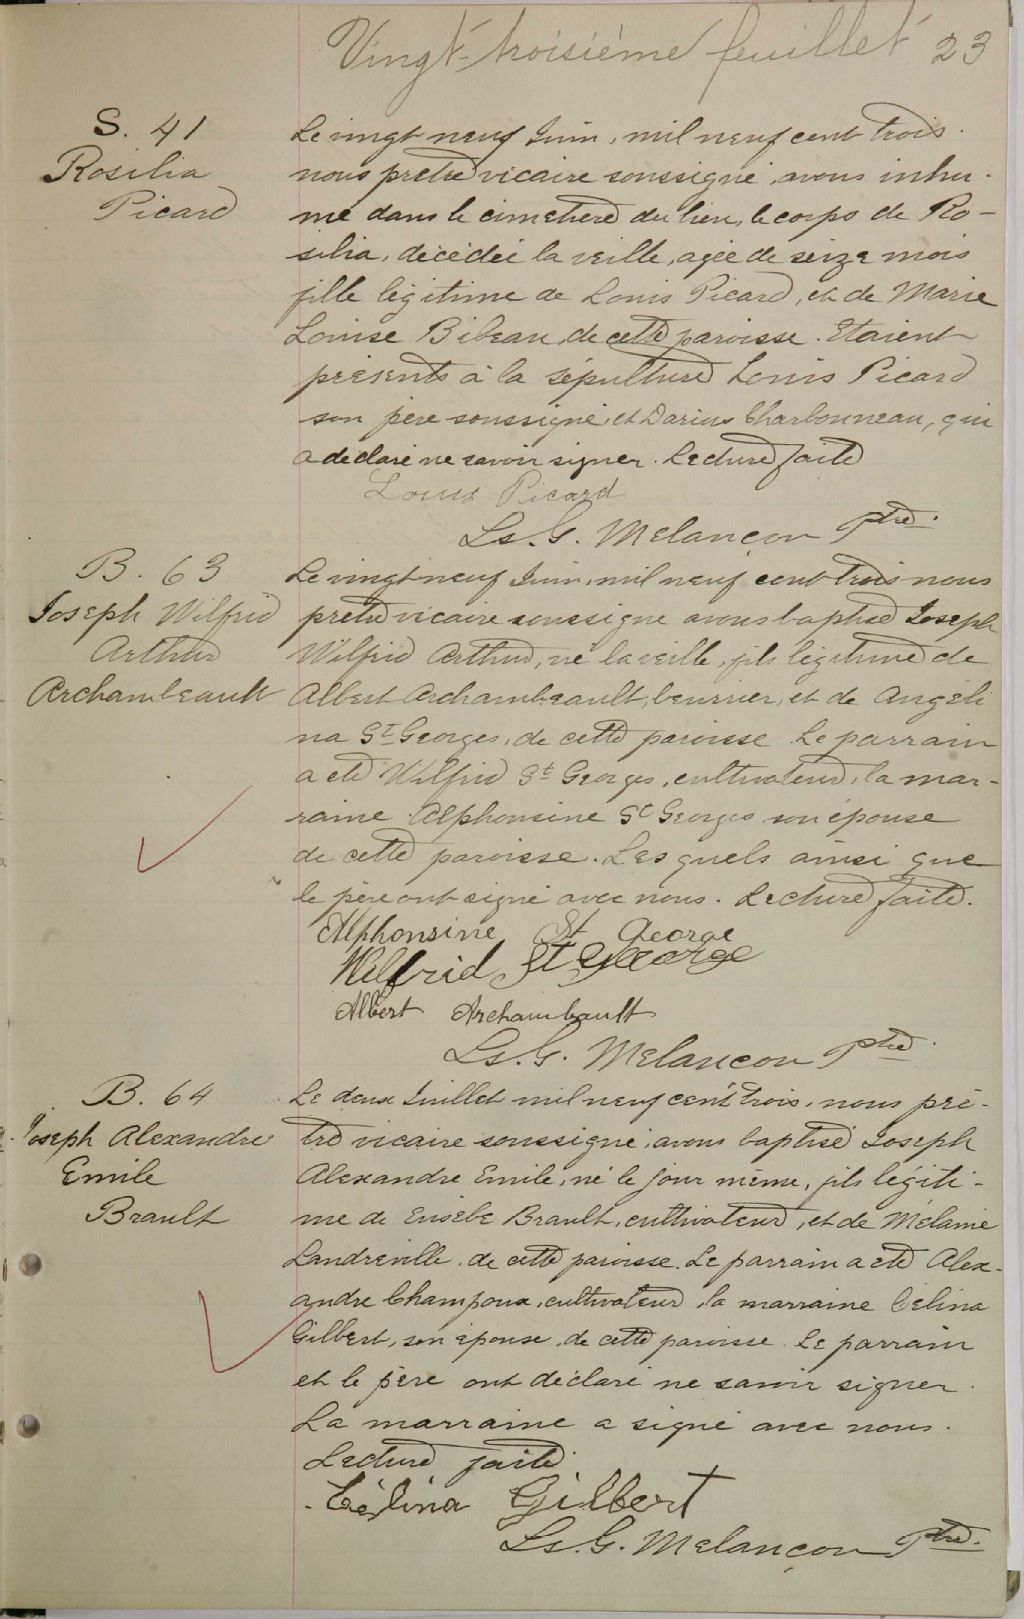 Vingt-troisième feuillet 23
S. 41
Rosilia
Picard
Le vingt neuf Juin, mil neuf cent trois.
nous prêtre vicaire soussigné, avons inhu-
mé dans le cimetière du lieu, le corps de Ro-
silia, décédée la veille, agée de seize mois
fille légitime de Louis Picard, et de Marie
Louise Bibeau, de cette paroisse. Etaient
présents à la sépulture Louis Picard
son père soussigné, et Darius Charbonneau, qui
a déclaré ne savoir signer. Lecture faite
Louis Picard
Ls. G. Melançon Ptre.
B. 63
Joseph Wilfrid
Arthur
Archambeault
Le vingt neuf Juin, mil neuf cent trois nous
prêtre vicaire soussigné avons baptisé Joseph
Wilfrid Arthur, né la veille, fils légitime de
Albert Archambeault, beurrier, et de Angéli
na St Georges, de cette paroisse Le parrain
a été Wilfrid St Georges, cultivateur, la mar-
raine Alphonsine St Georges son épouse
de cette paroisse. Lesquels ainsi que
le père ont signé avec nous. Lecture faite.
Alphonsine St George
Wilfrid St George
Albert Archambault
Ls. G. Melancon Ptre.
B. 64
Joseph Alexandre
Emile
Brault
Le deux Juillet mil neuf cent trois, nous prê-
tre vicaire soussigné, avons baptisé Joseph
Alexandre Emile, né le jour même, fils légiti-
me de Eusèbe Brault, cultivateur, et de Mélanie
Landreville, de cette paroisse. Le parrain a été Alex-
andre Champoux, cultivateur, la marraine Célina
Gilbert, son épouse, de cette paroisse. Le parrain
et le père ont déclaré ne savoir signer.
La marraine a signé avec nous.
Lecture faite.
Célina Gilbert
Ls. G. Melançon Ptre.